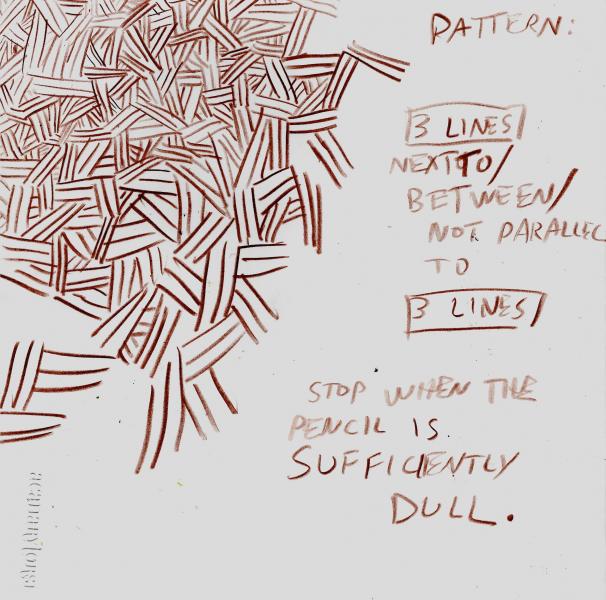 PATTERN:
3 LINES
NEXT TO/
BETWEEN/
NOT PARALLEL
TO
3 LINES
STOP WHEN THE
PENCIL IS
SUFFICIENTLY
DULL.